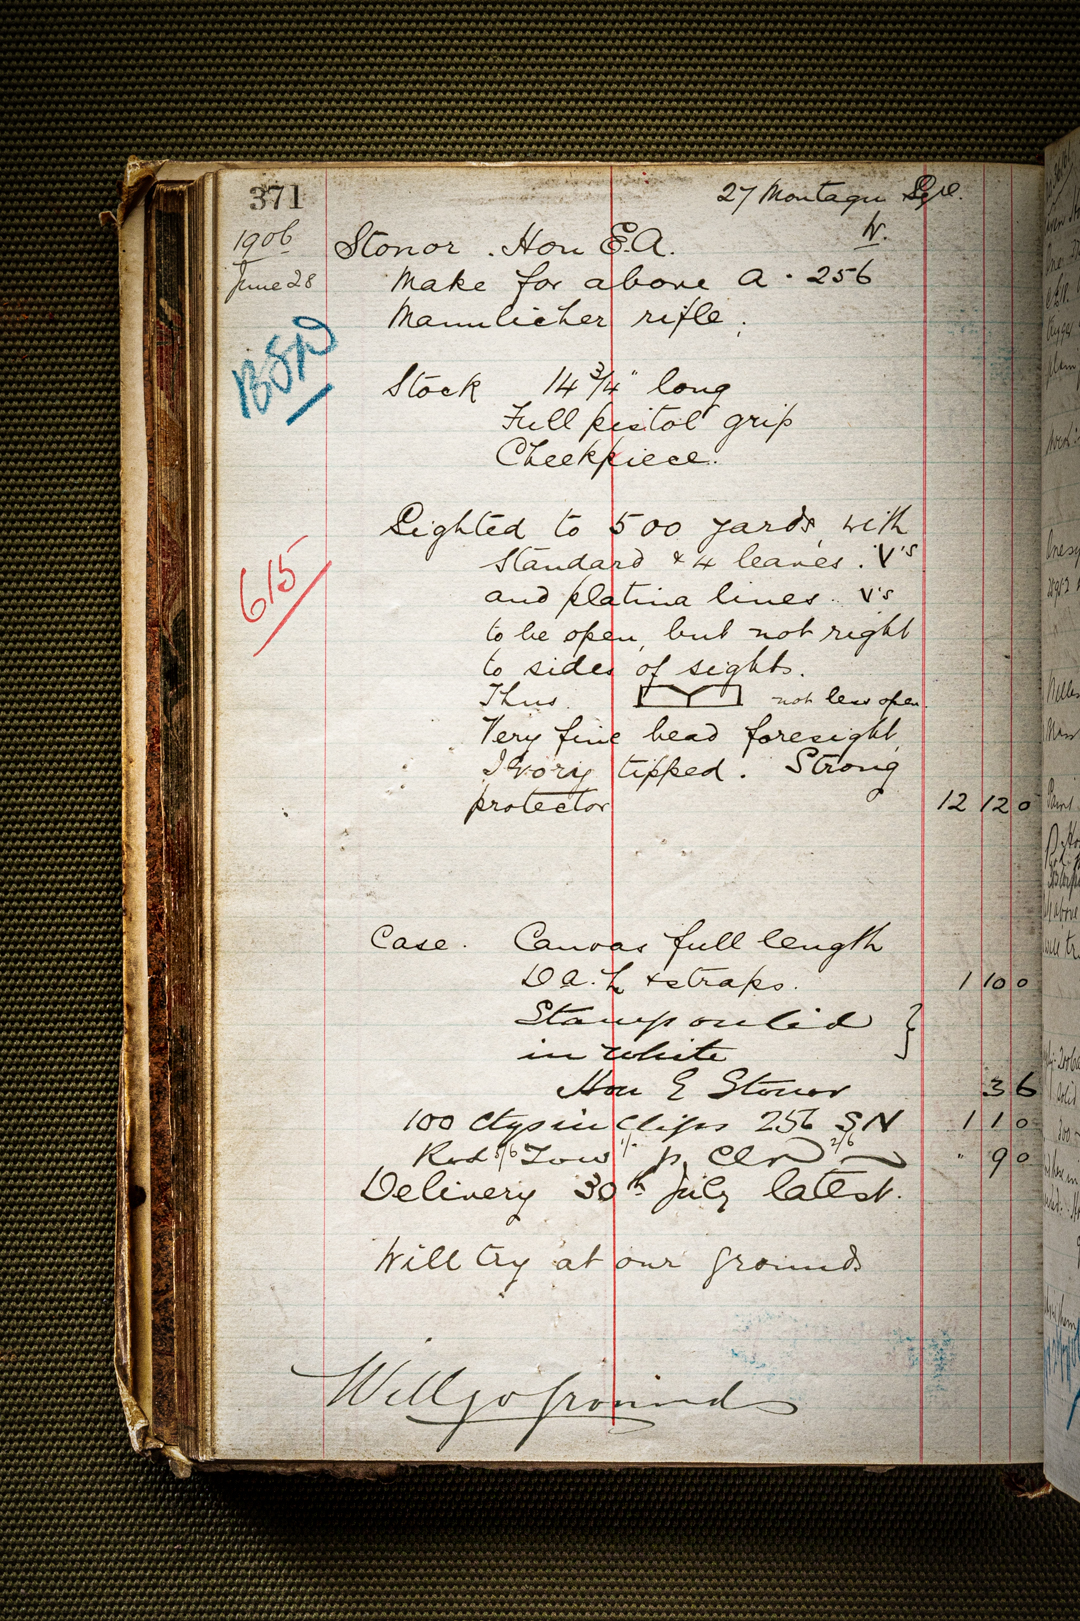 371
27 Montagu Sqre.
W.
1906
June 28
Stonor . Hon E.A.
Make for above a .256
Mannlicher rifle.
BSN
Stock 14 3/4" long
Full pistol grip
Cheekpiece.
Sighted to 500 yards, with
Standard & 4 leaves. V's
and platina lines. V's
to be open, but not right
to sides of sights.
Thus not less open.
Very fine bead foresight,
Ivory tipped. Strong
protector 12 12 0
615
Case. Canvas full length
D a. L & straps. 1 10 0
Stamp on lid }
in white
Hon E Stonor 3 6
100 Ctgs in Clips 256 SN 1 1 0
Rod 5/6 Tow 1/- 2/6 " 9 0
Delivery 30th July latest.
Will try at our grounds
Will go grounds